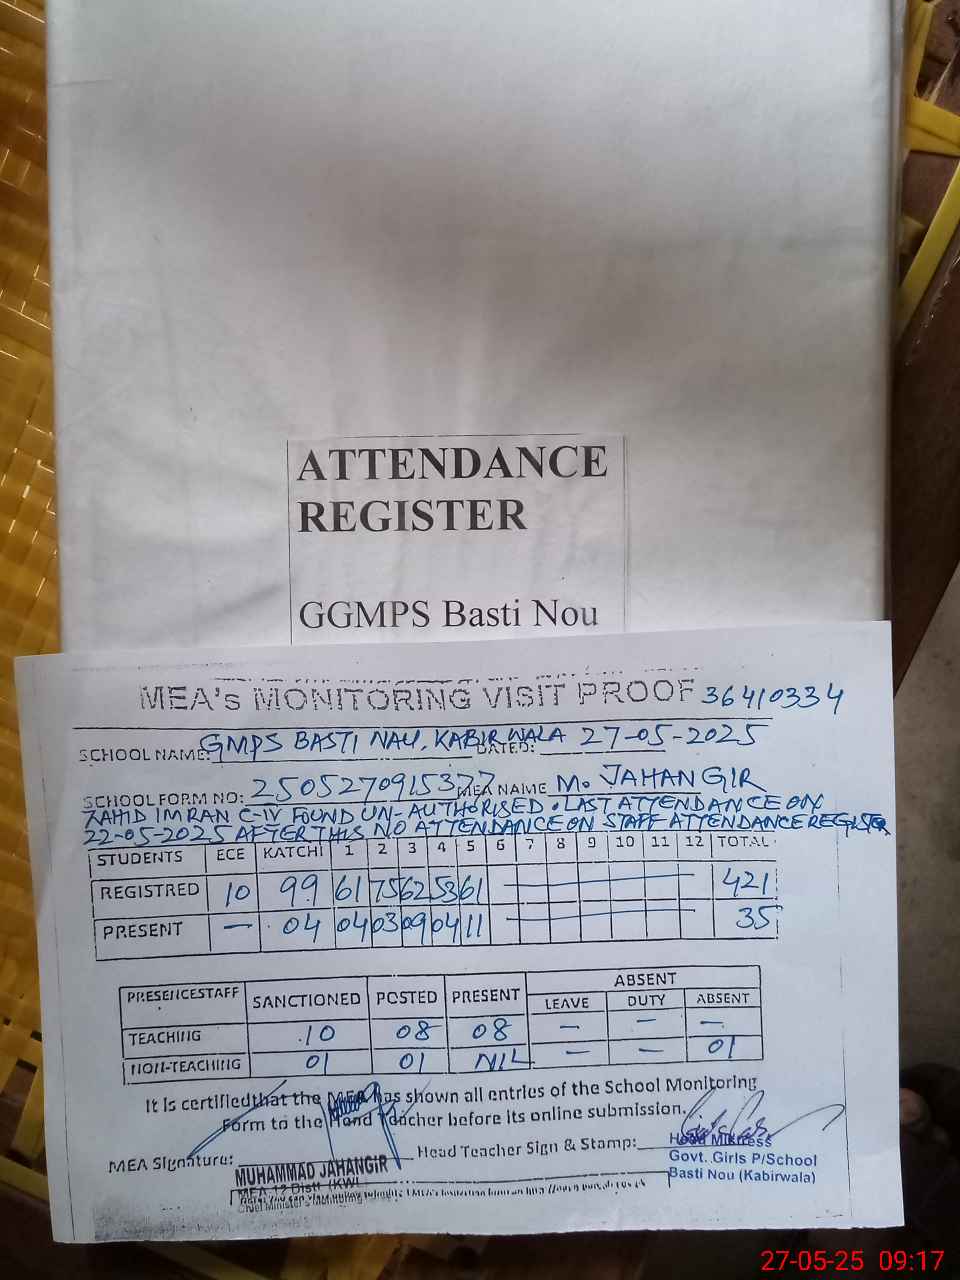 ATTENDANCE
REGISTER
GGMPS Basti Nou
MEA's MONITORING VISIT PROOF 36410334
SCHOOL NAME: GMPS BASTI NAU, KABIRWALA DATED: 27-05-2025
SCHOOL FORM NO: 250527091537 MEA NAME M. JAHANGIR
ZAHID IMRAN C-IV FOUND UN-AUTHORISED. LAST ATTENDANCE ON
22-05-2025 AFTER THIS NO ATTENDANCE ON STAFF ATTENDANCE REGISTER
STUDENTS ECE KATCHI 1 2 3 4 5 6 7 8 9 10 11 12 TOTAL
REGISTRED 10 99 61 75 62 53 61 421
PRESENT — 04 04 03 09 04 11 35
PRESENCESTAFF SANCTIONED POSTED PRESENT ABSENT
LEAVE DUTY ABSENT
TEACHING 10 08 08 — — —
NON-TEACHING 01 01 NIL — — 01
It is certified that the MEA has shown all entries of the School Monitoring
Form to the Head Teacher before its online submission.
MEA Signature: Head Teacher Sign & Stamp:
MUHAMMAD JAHANGIR
Head Mistress
Govt. Girls P/School
Basti Nou (Kabirwala)
27-05-25 09:17